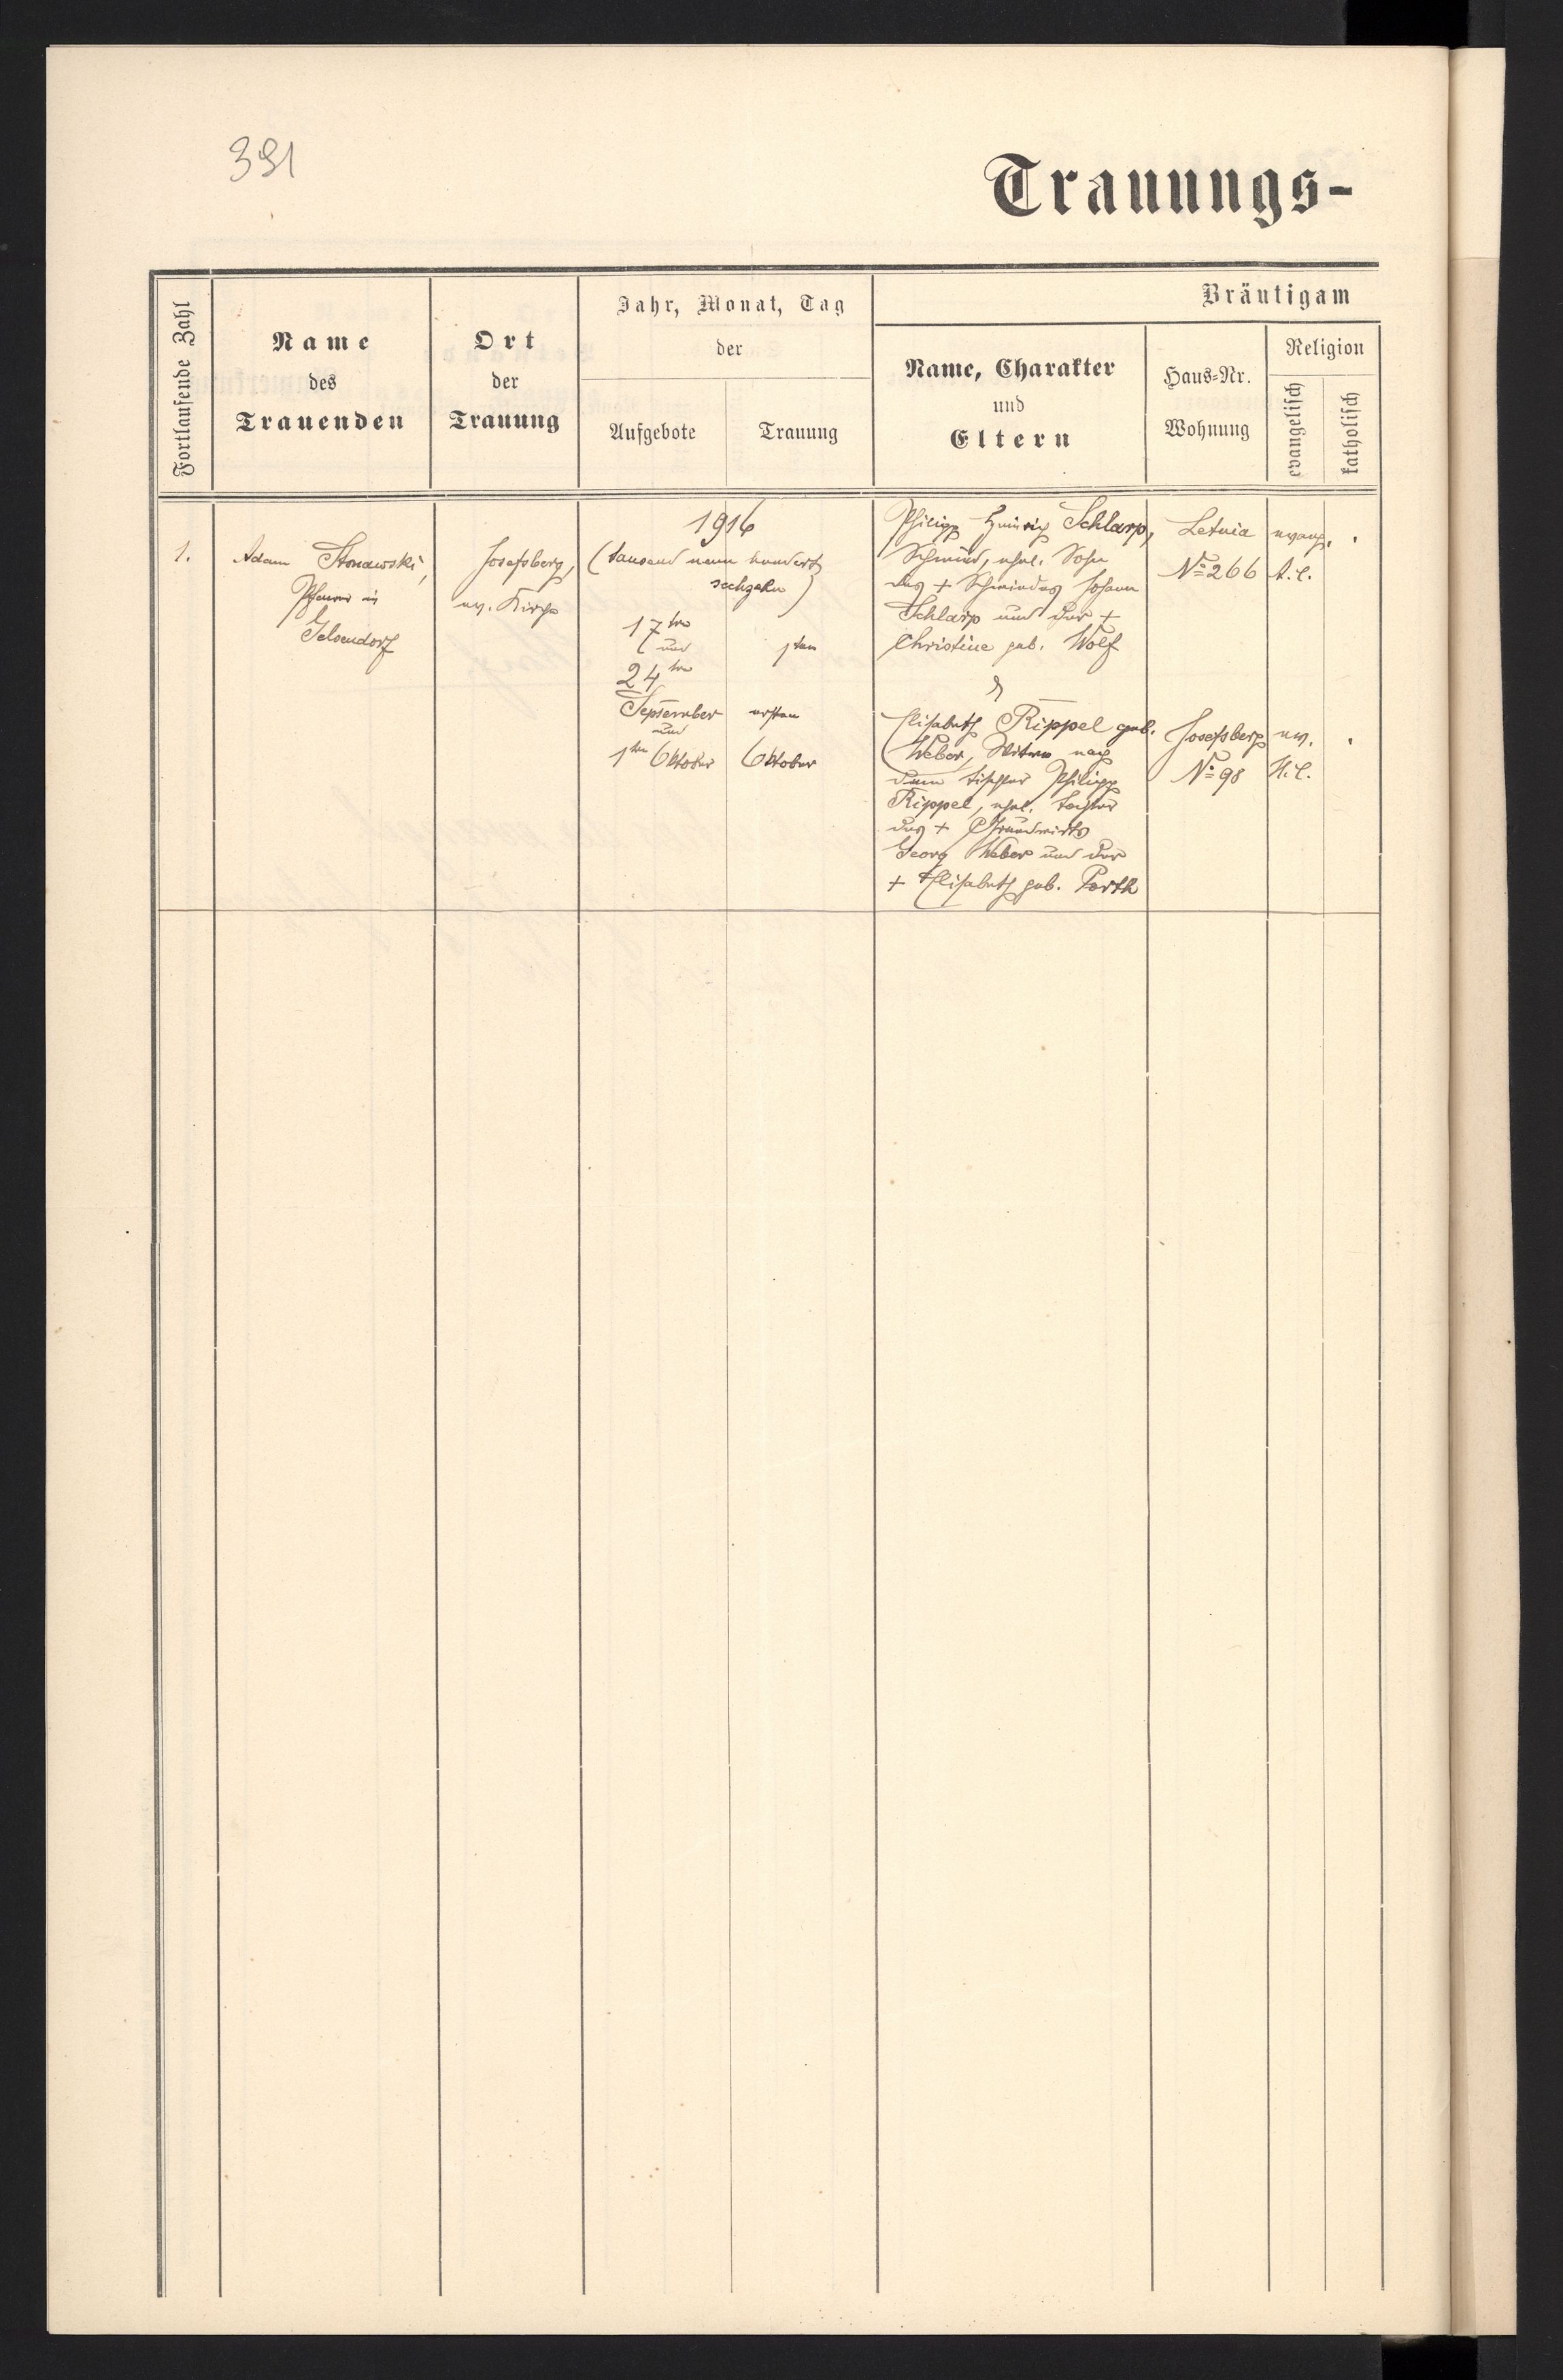 391
Trauungs-
Fortlaufende Zahl
Name
des
Trauenden
Ort
der
Trauung
Jahr, Monat, Tag
der
Aufgebote
Trauung
Bräutigam
Name, Charakter
und
Eltern
Haus-Nr.
Wohnung
Religion
evangelisch
katholisch
1.
Adam Stonawski,
Pfarrer in
Gelsendorf
Josefsberg,
ev. Kirche
1916
(tausend neun hundert
sechzehn)
17ten
und
24ten
September
und
1ten Oktober
1ten
ersten
Oktober
Philipp Heinrich Schlarp,
Schmied, ehel. Sohn
des + Schmiedes Johann
Schlarp und der +
Christine geb. Wolf
Letnia
No 266
evang.
A.C.
Elisabeth Rippel geb.
Weber, Witwe nach
dem Tischler Philipp
Rippel, ehel. Tochter
des + Grundwirts
Georg Weber und der
+ Elisabeth geb. Porth
Josefsberg
No 98
ev.
H.C.